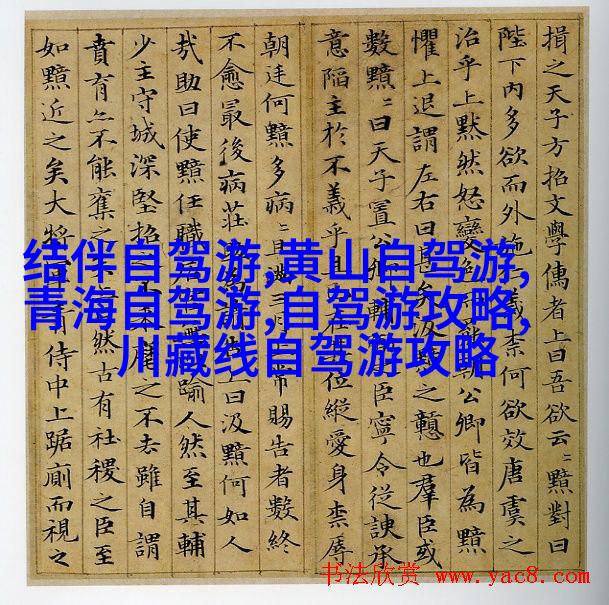 揖之天子方招文學儒者上曰吾欲云〻黯對曰
陛下內多欲而外施仁義柰何欲效唐虞之
治乎上默然怒變色罷朝公卿皆為黯
懼上退謂左右曰甚矣汲黯之戇也羣臣或
數黯〻曰天子置公卿輔弼之臣寧令從諛承
意陷主於不義乎且已在其位縱愛身柰辱
朝廷何黯多病〻且滿三月上常賜告者數終
不愈最後病莊助為請告上曰汲黯何如人
㦲助曰使黯任職居官踰人然至其輔
少主守城深堅招之不來麾之不去雖自謂
賁育亦不能奪之矣上曰然古有社稷之臣至
如黯近之矣大將軍青侍中上踞廁而視之
结伴自驾游,黄山自驾游,
青海自驾游,自驾游攻略,
川藏线自驾游攻略
书法欣赏 www.yac8.com